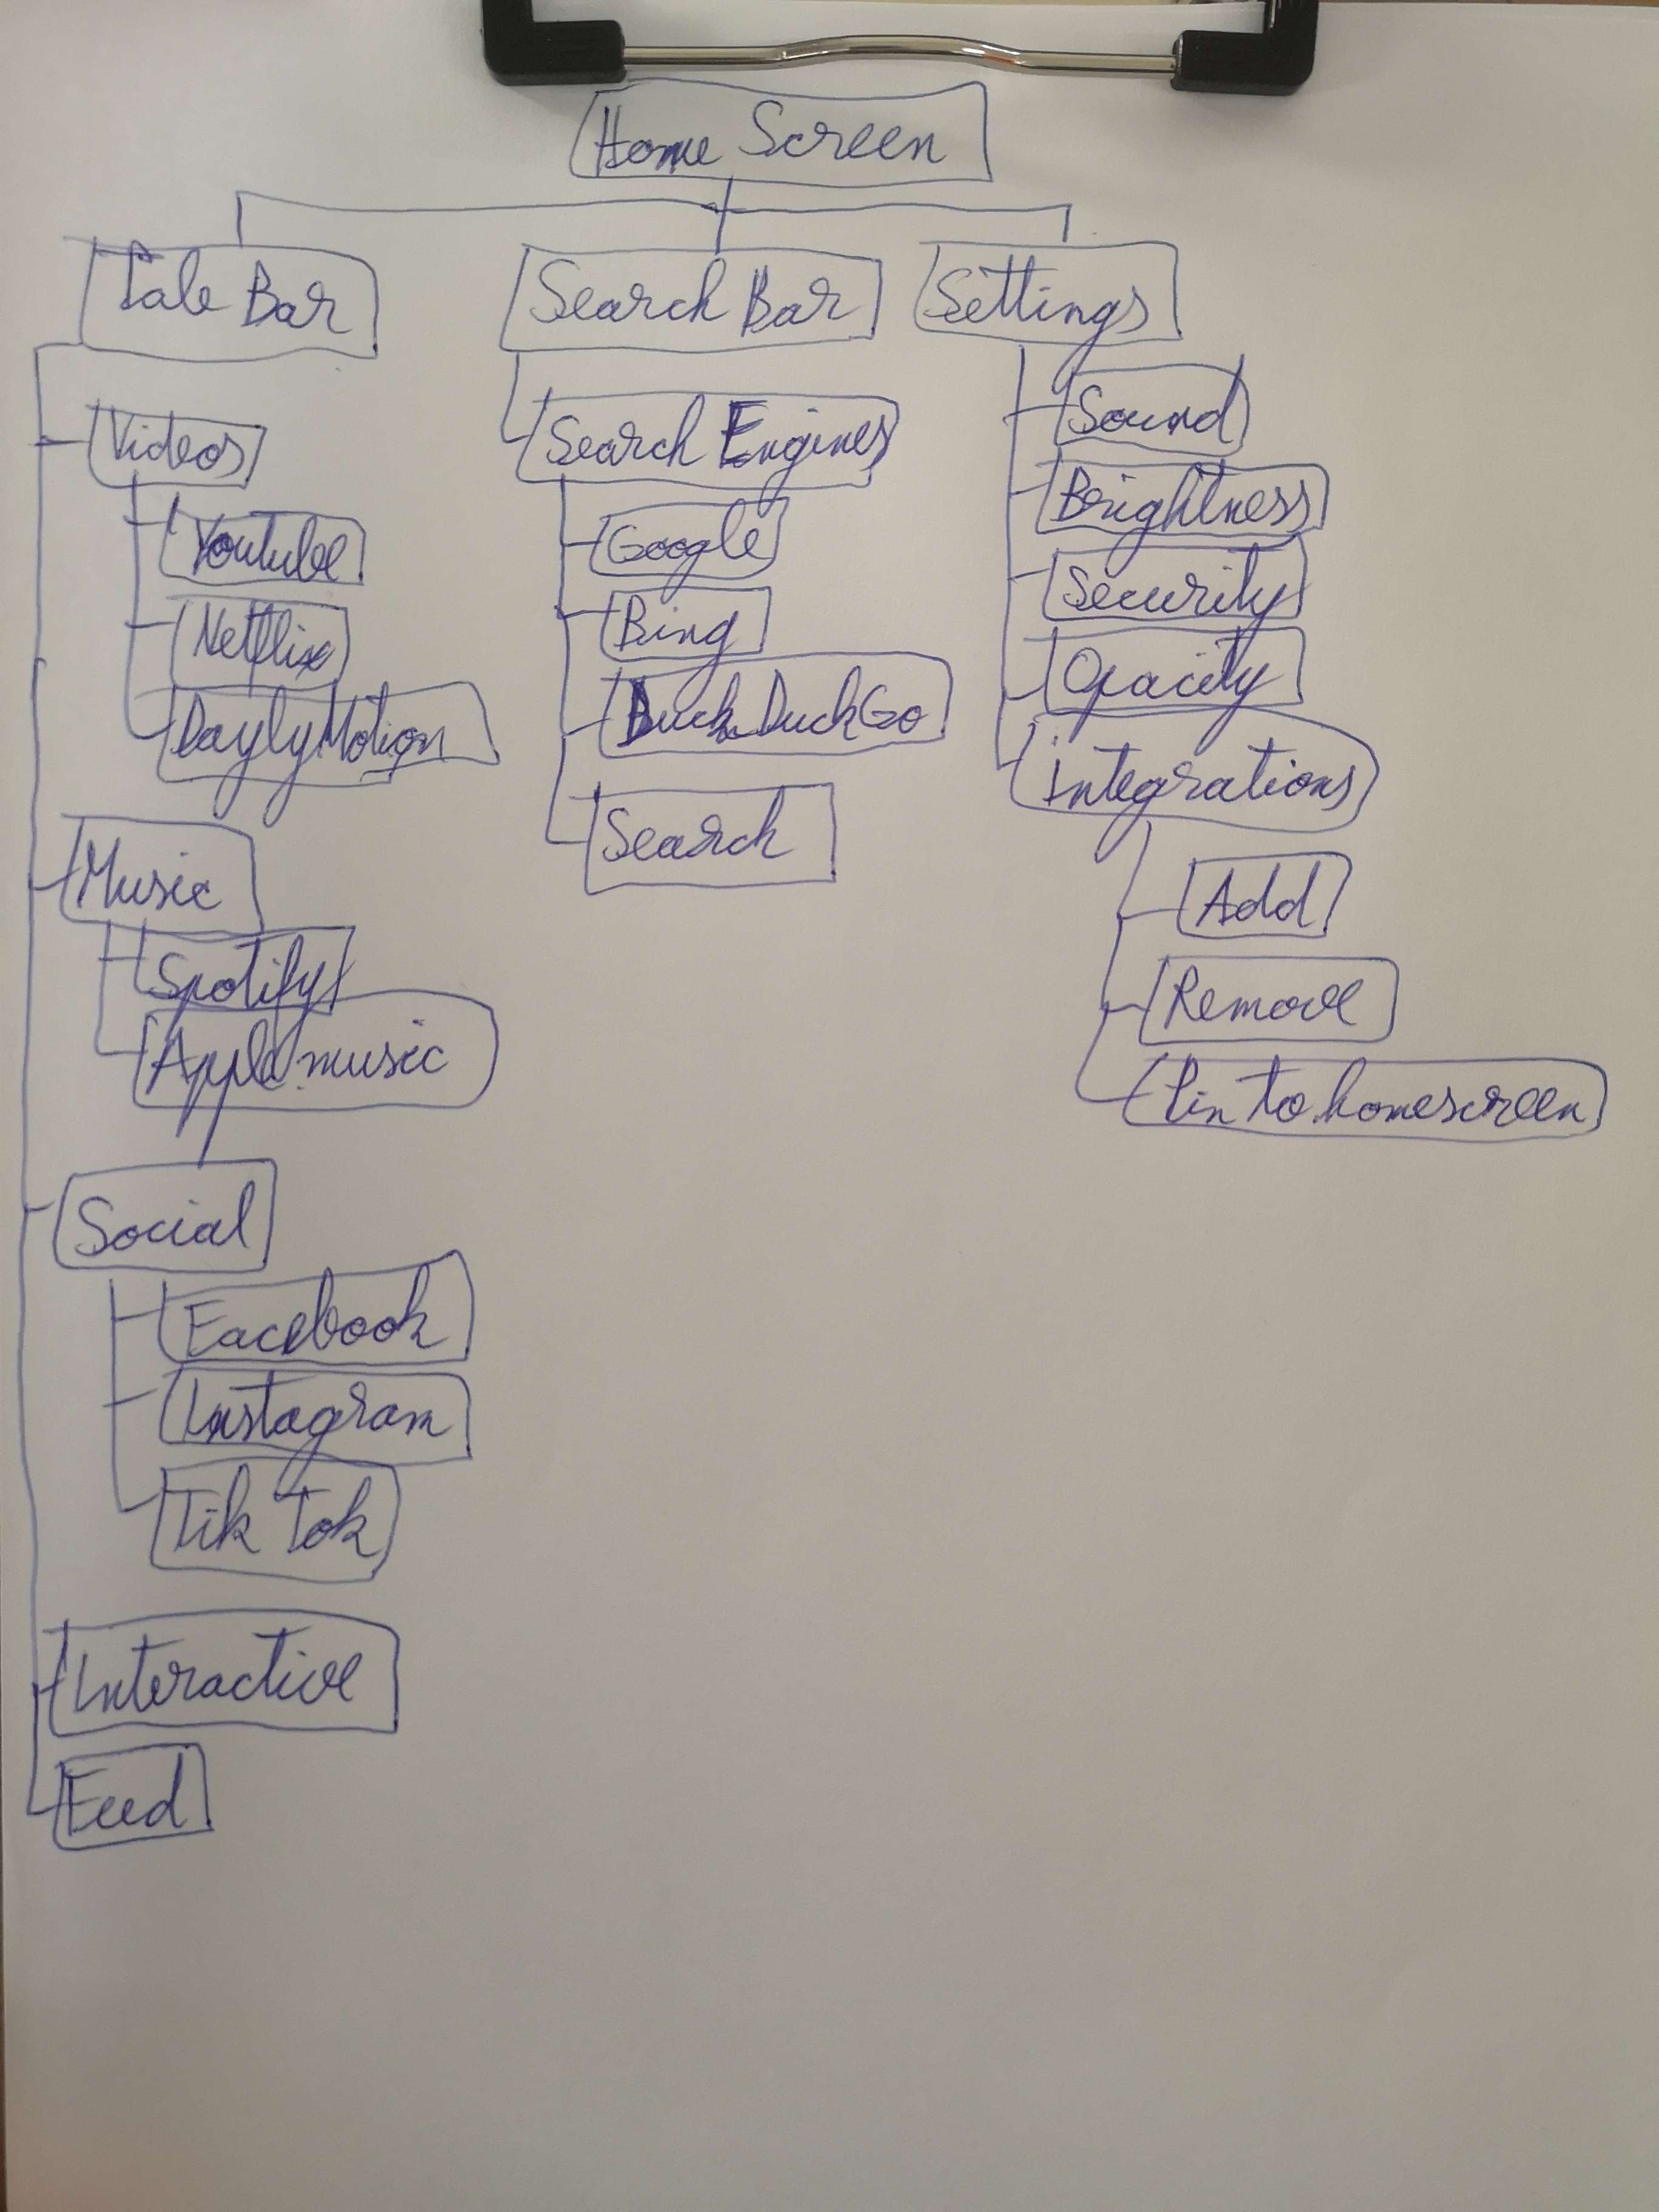 Home Screen
Tab Bar
Videos
Youtube
Netflix
DaylyMotion
Music
Spotify
Apple music
Social
Facebook
Instagram
Tik Tok
Interactive
Feed
Search Bar
Search Engines
Google
Bing
Duck DuckGo
Search
Settings
Sound
Brightness
Security
Opacity
integrations
Add
Remove
Pin to homescreen